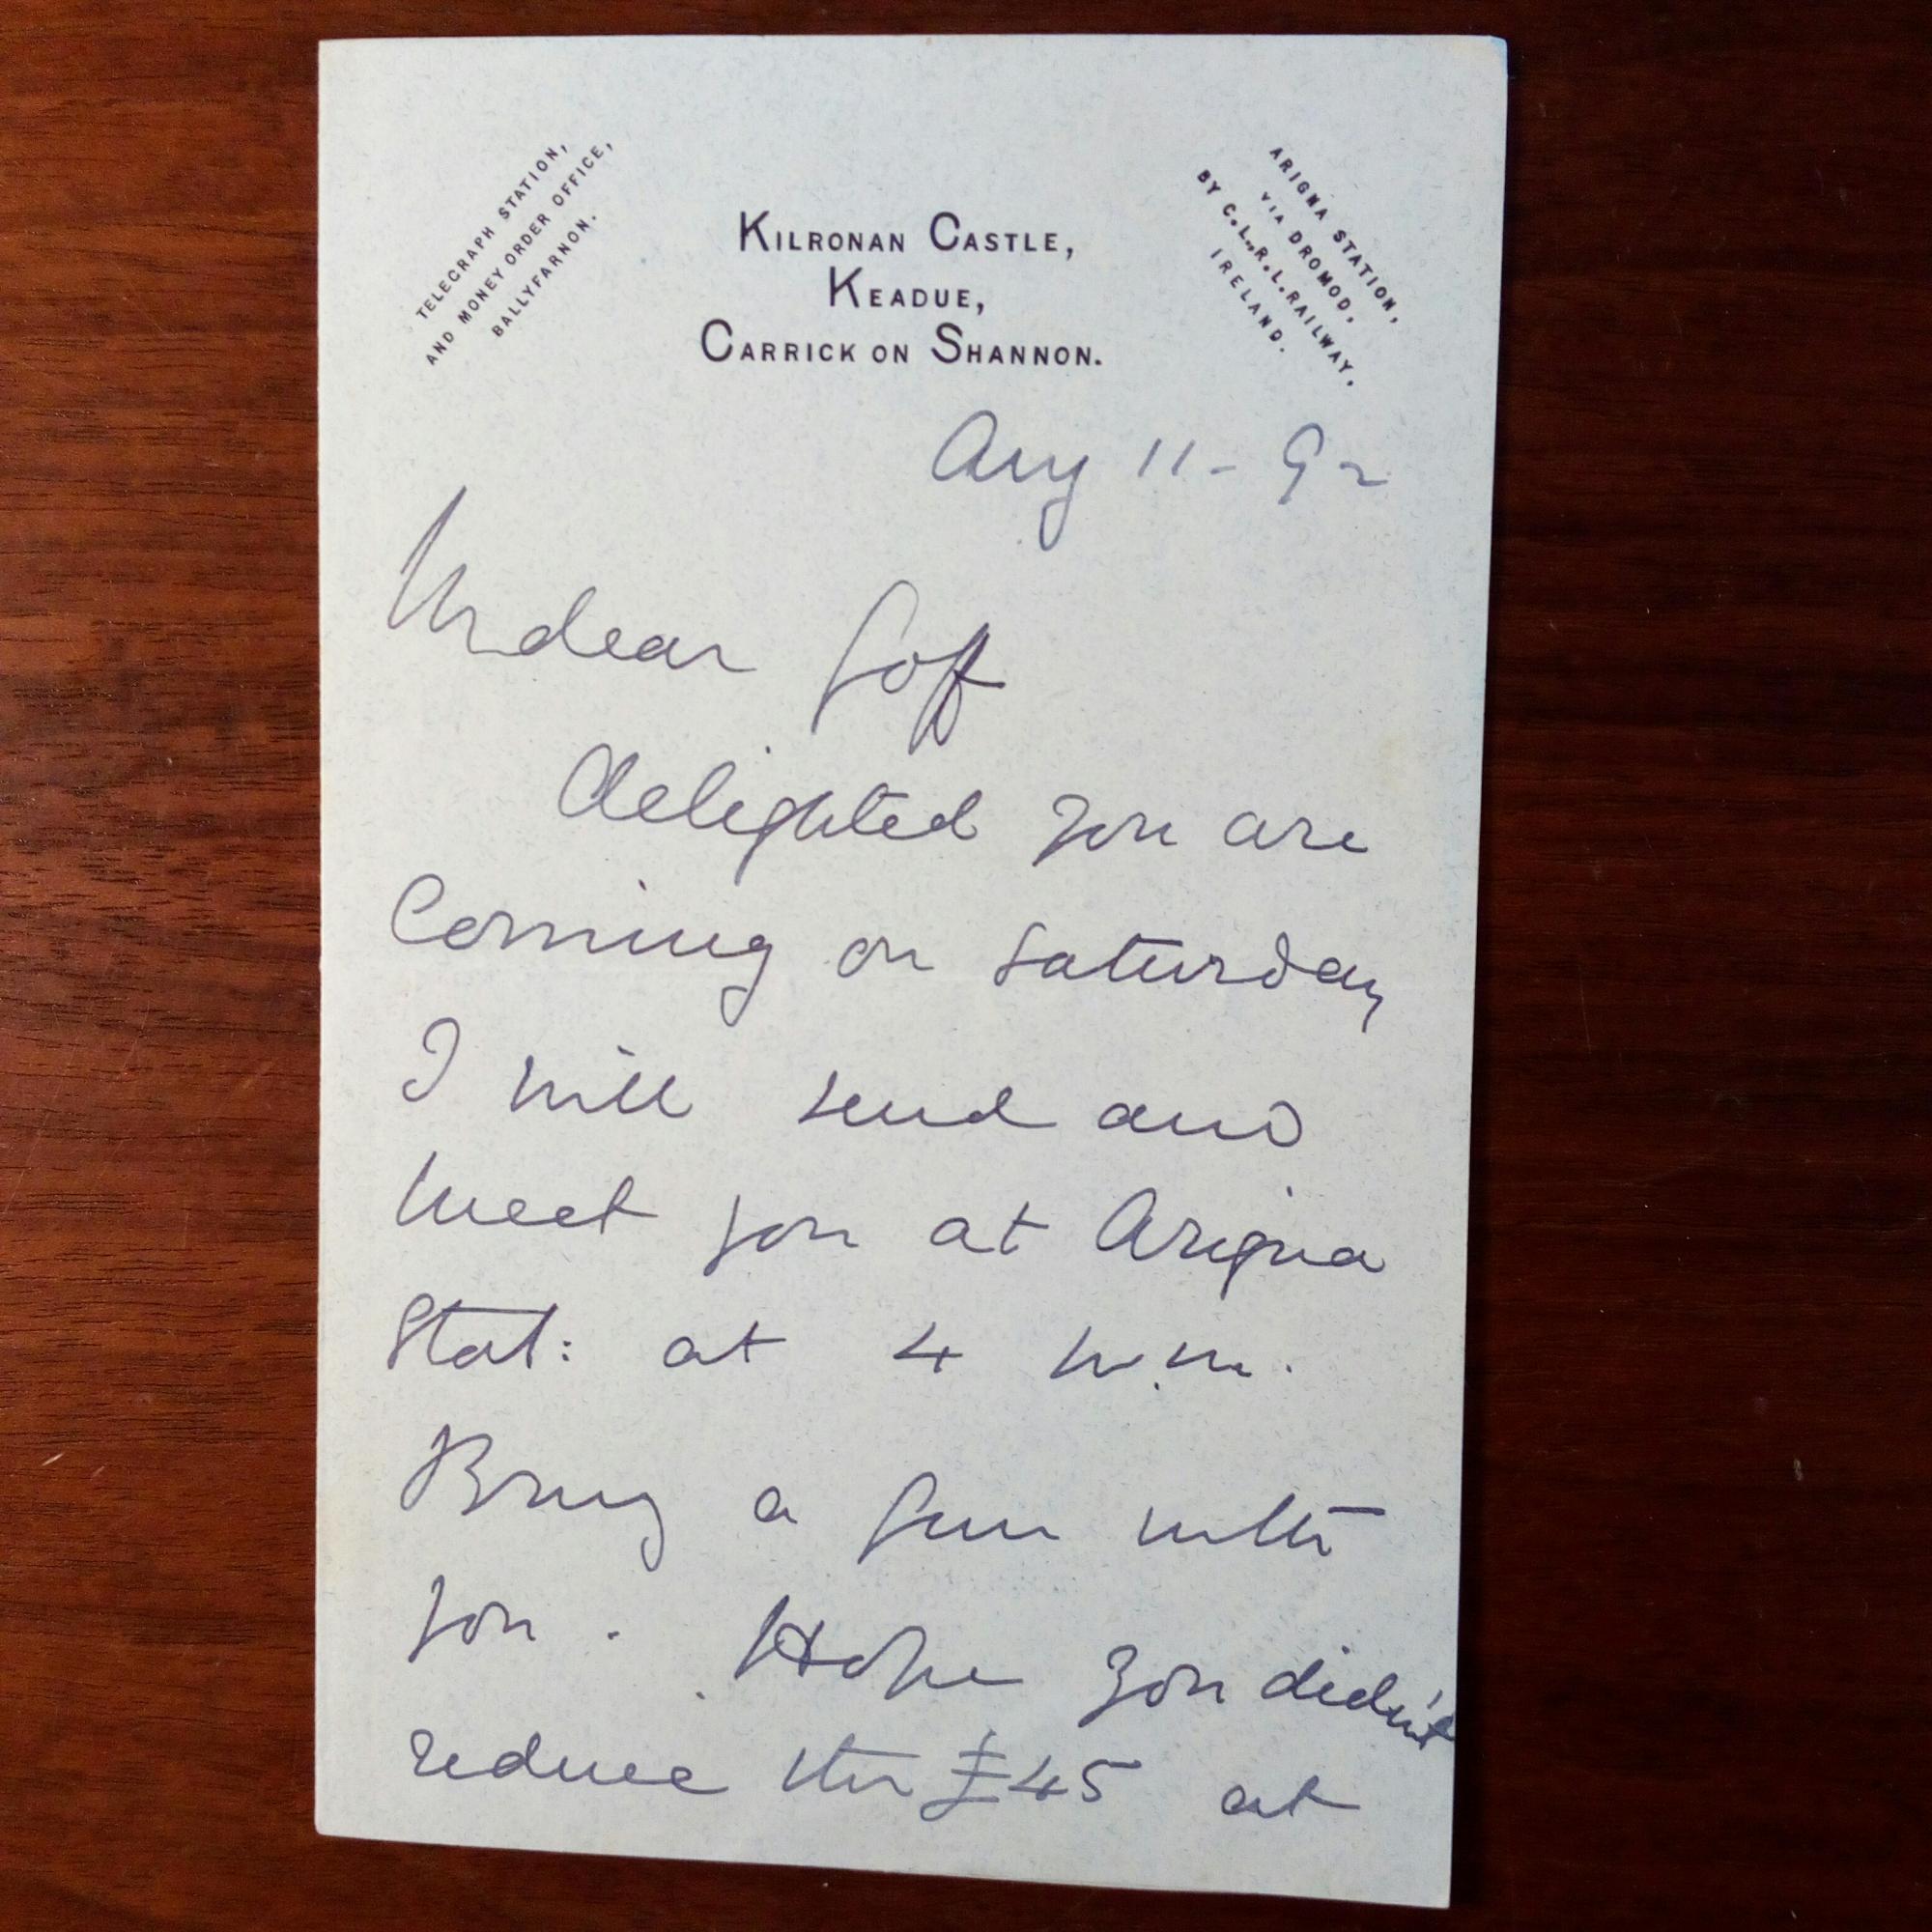 TELEGRAPH STATION,
AND MONEY ORDER OFFICE,
BALLYFARNON.
KILRONAN CASTLE,
KEADUE,
CARRICK ON SHANNON.
ARIGNA STATION,
VIA DROMOD,
BY C.L.&R.L.RAILWAY,
IRELAND.
Aug 11-92
My dear Goff
delighted you are
Coming on Saturday
I will send and
meet you at Arigna
Stat: at 4 p.m.
Bring a gun with
you. Hope you didn't
reduce the £45 at